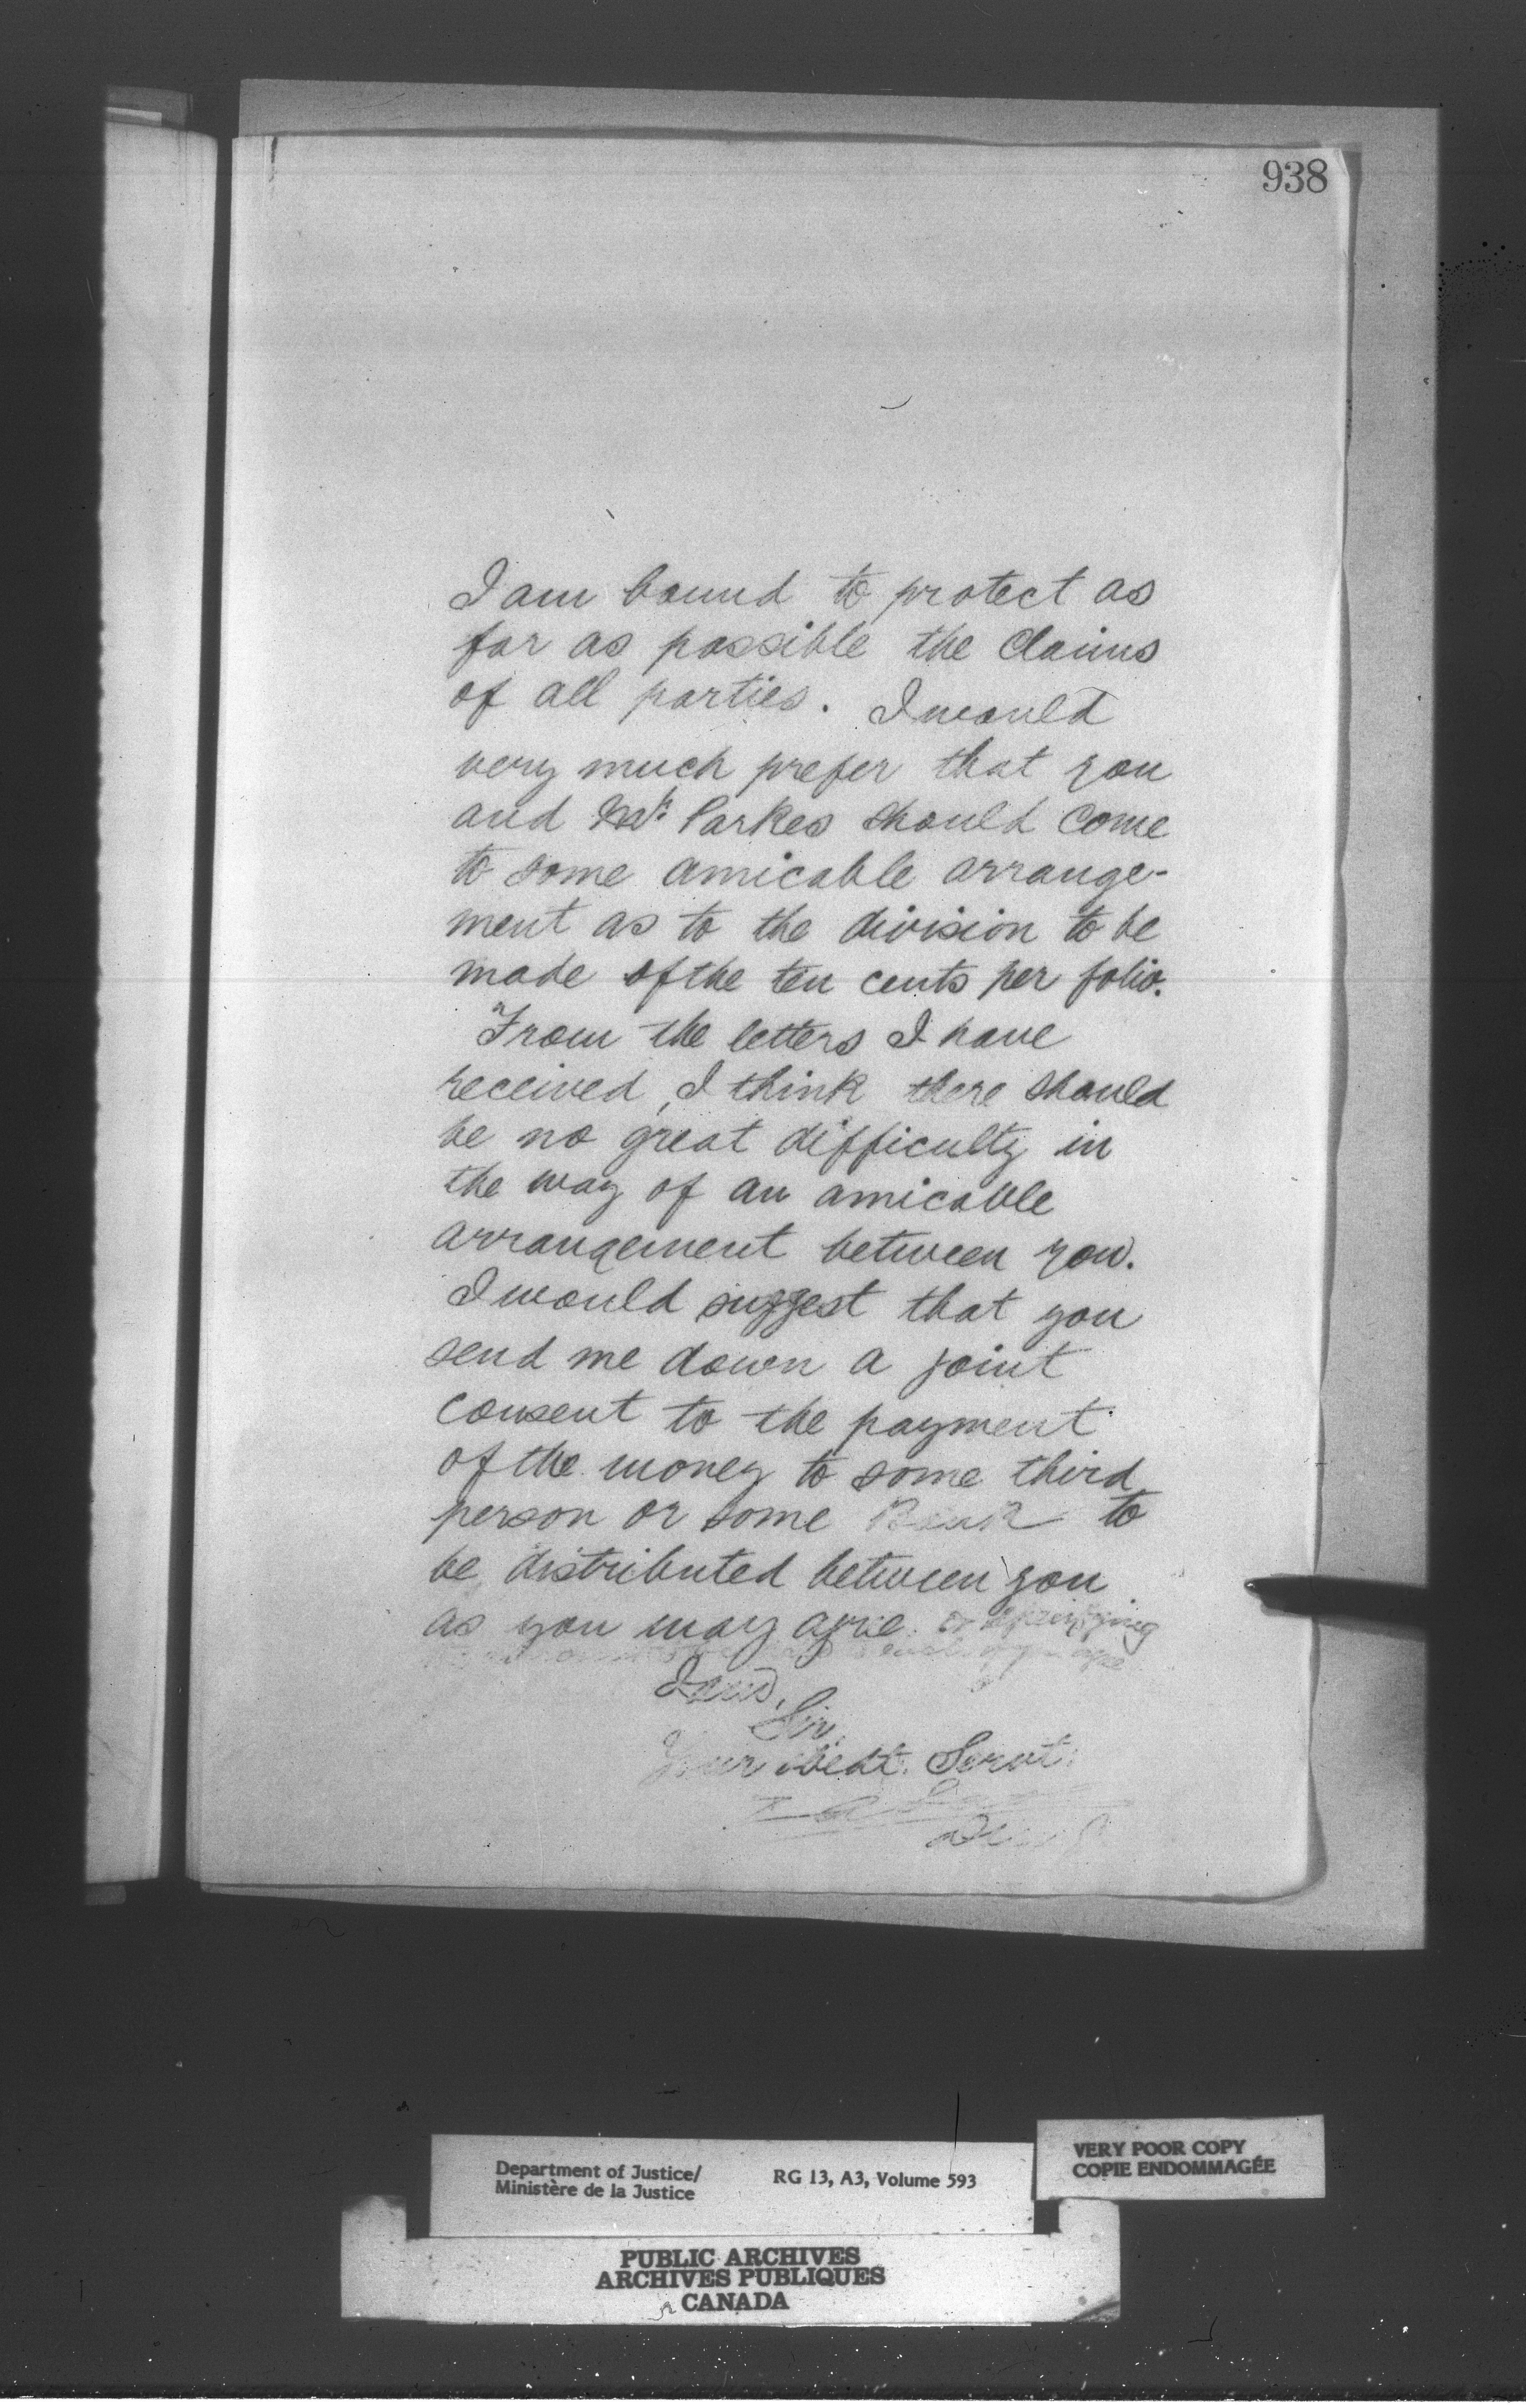 938
I am bound to protect as
far as possible the claims
of all parties. I would
very much prefer that you
and Mr. Parkes should come
to some amicable arrange-
ment as to the division to be
made of the ten cents per folio.
From the letters I have
received, I think there should
be no great difficulty in
the way of an amicable
arrangement between you.
I would suggest that you
send me down a joint
consent to the payment
of the money to some third
person or some Bank to
be distributed between you
as you may agree or specifying
I am,
Sir,
Your obedt. Servt.
Department of Justice/
Ministère de la Justice
RG 13, A3, Volume 593
VERY POOR COPY
COPIE ENDOMMAGÉE
PUBLIC ARCHIVES
ARCHIVES PUBLIQUES
CANADA